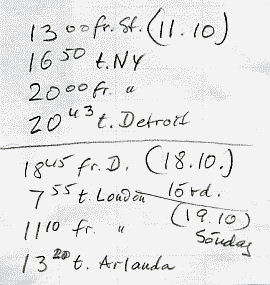 13 00 fr. St. (11.10)
16 50 t. NY
20 00 fr. "
20 43 t. Detroit
18 45 fr. D. (18.10.)
7 55 t. London lörd.
11 10 fr. " (19.10)
Söndag
13 20 t. Arlanda